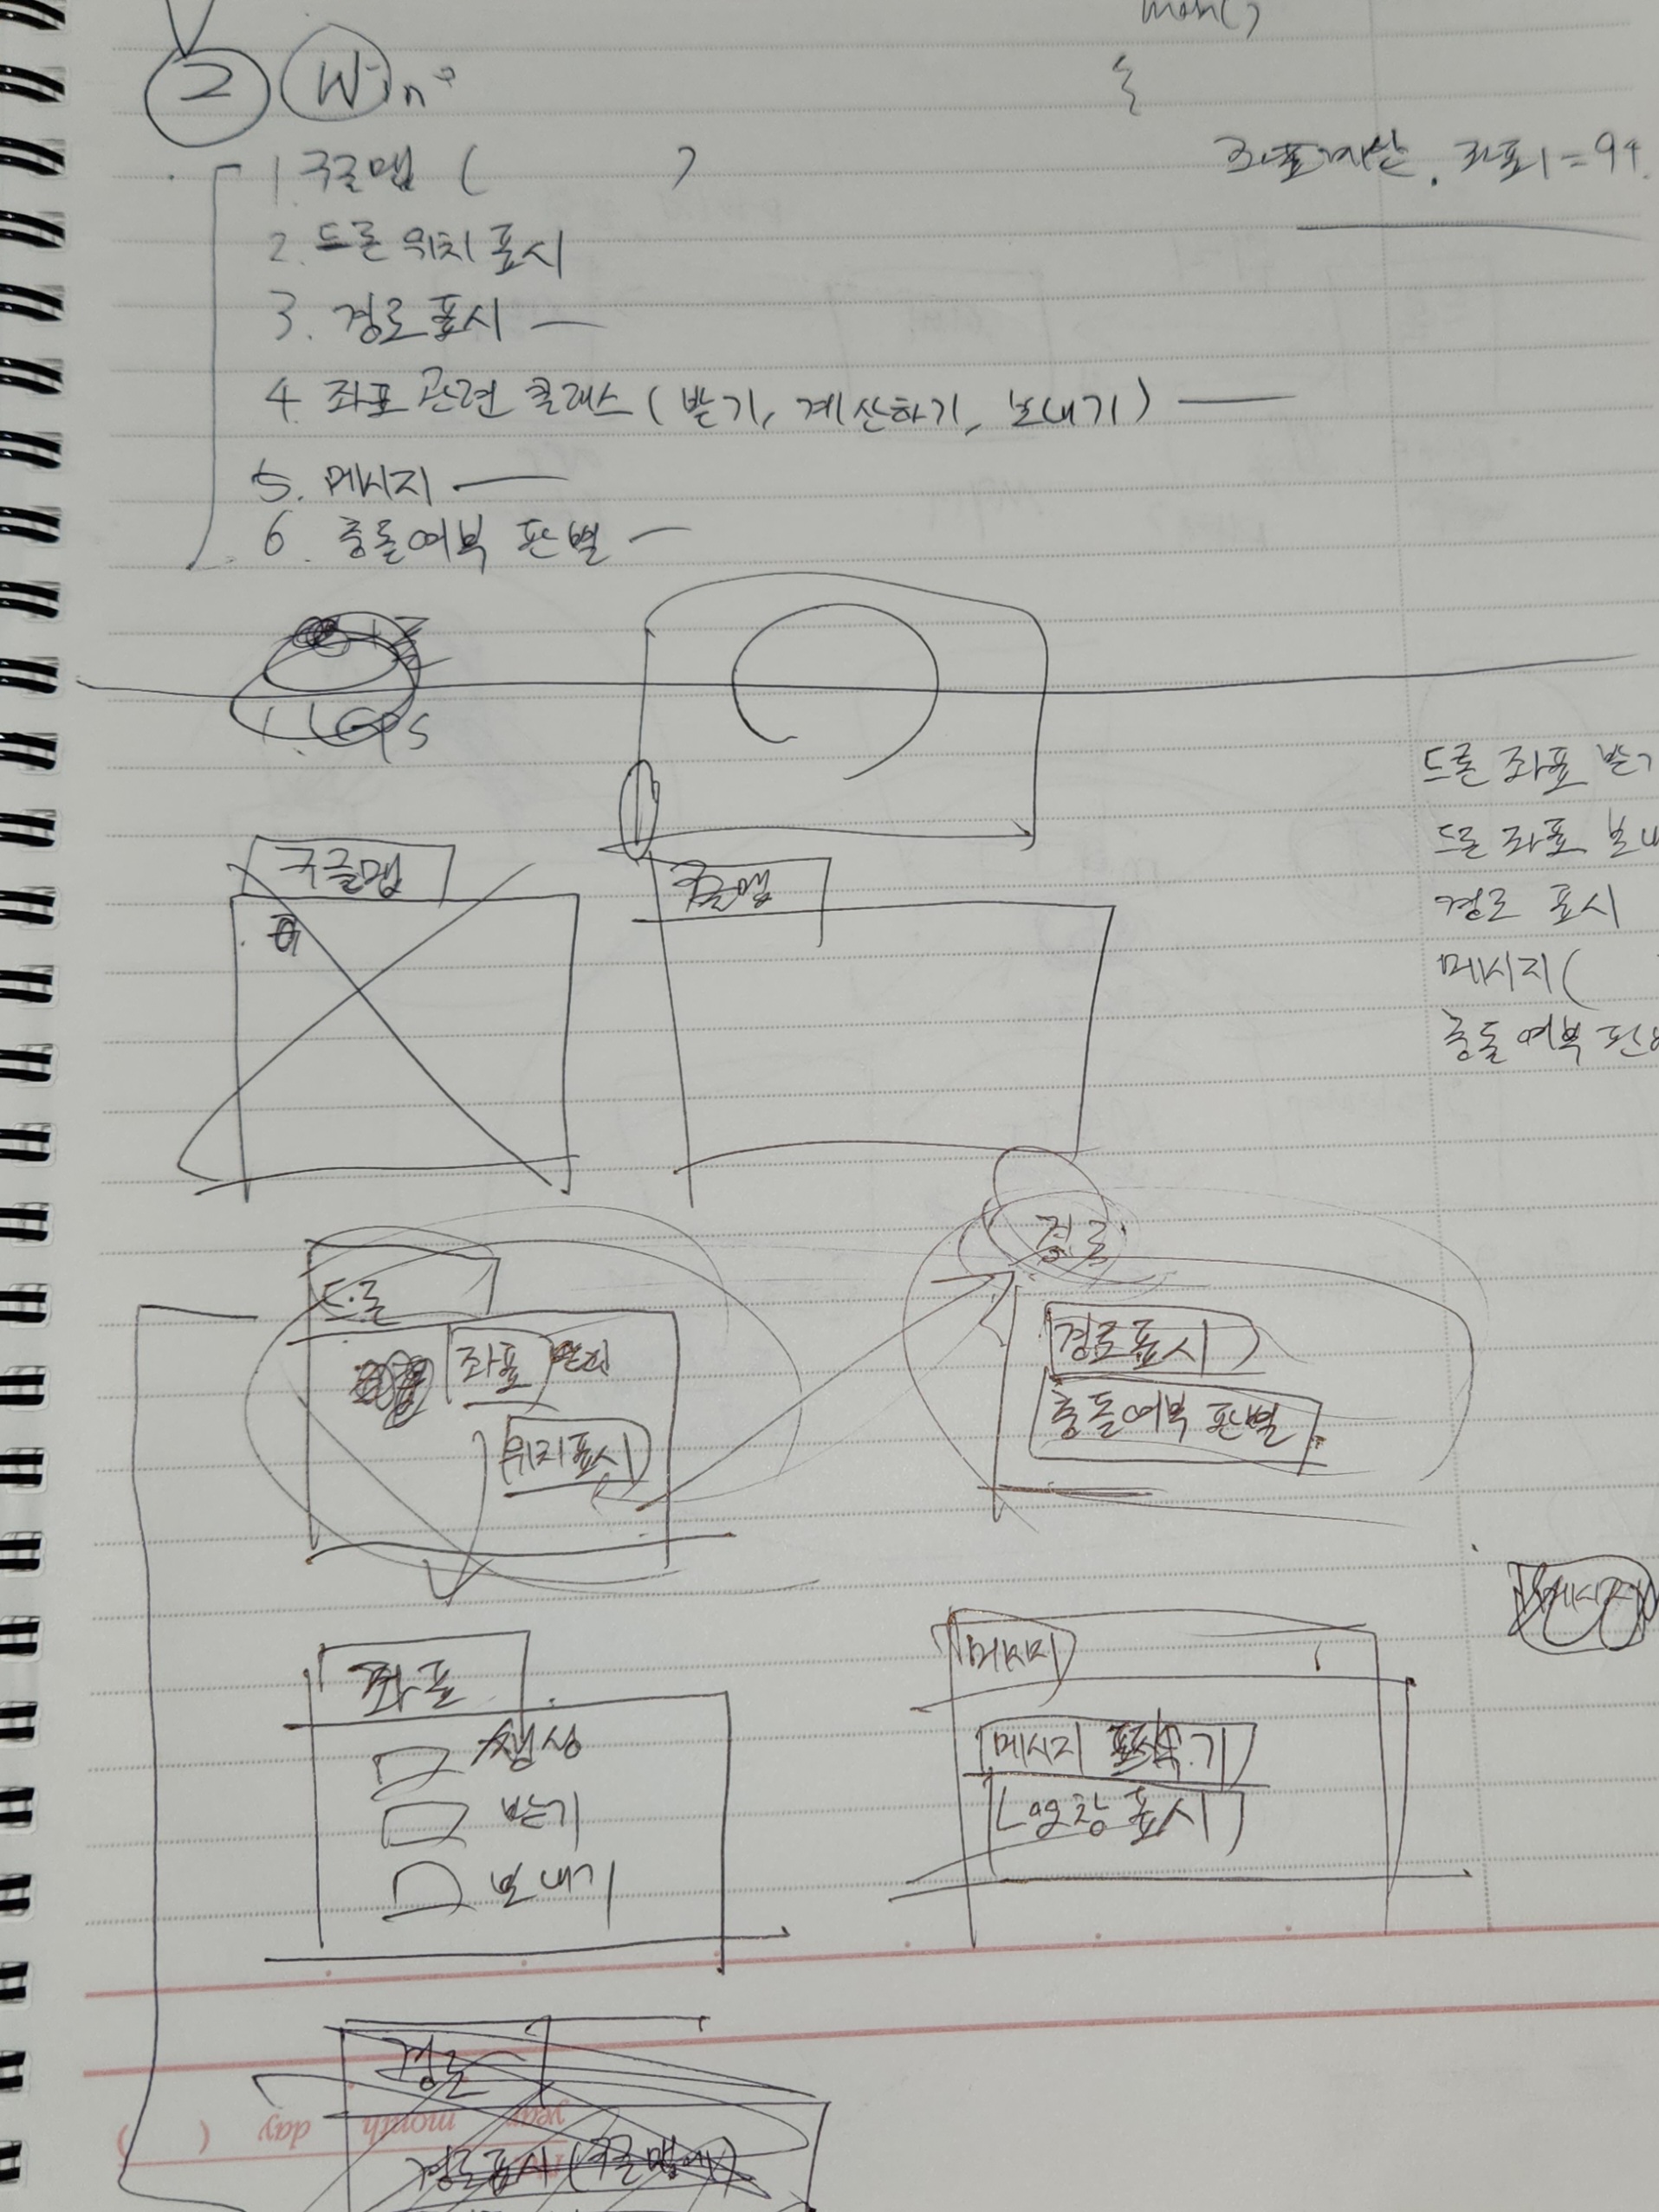 main()
② Win
{
1. 구글맵 ( )
좌표계산. 좌표1=94.
2. 드론 위치 표시
3. 경로표시 —
4. 좌표 관련 클래스 (받기, 계산하기, 보내기) —
5. 메시지 —
6. 충돌여부 판별 —
GPS
드론 좌표 받기
드론 좌표 보내
경로 표시
메시지 (
충돌여부 판별
구글맵
구글맵
드론
좌표
위치표시
경로
경로표시
충돌여부 판별
좌표
생성
받기
보내기
메시지
메시지
Log창 표시
메시지
경로
경로표시 (구글맵에)
year month day ( )